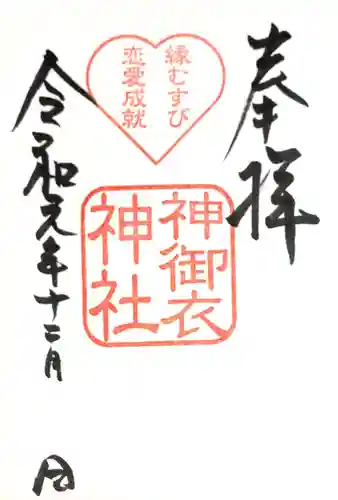 奉拝
縁むすび
恋愛成就
神御衣
神社
令和元年十二月 日